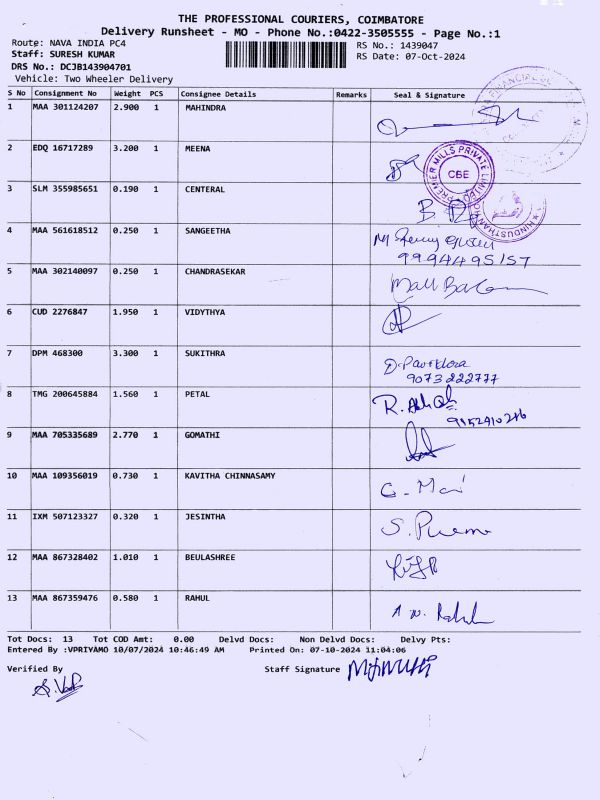 THE PROFESSIONAL COURIERS, COIMBATORE
Delivery Runsheet - MO - Phone No.:0422-3505555 - Page No.:1
Route: NAVA INDIA PC4
RS No.: 1439047
Staff: SURESH KUMAR
RS Date: 07-Oct-2024
DRS No.: DCJB143904701
Vehicle: Two Wheeler Delivery
S No Consignment No Weight PCS Consignee Details Remarks Seal & Signature
1 MAA 301124207 2.900 1 MAHINDRA
2 EDQ 16717289 3.200 1 MEENA
PREMIER MILLS PRIVATE LIMITED
CBE
3 SLM 355985651 0.190 1 CENTERAL
4 MAA 561618512 0.250 1 SANGEETHA
9994495157
5 MAA 302140097 0.250 1 CHANDRASEKAR
6 CUD 2276847 1.950 1 VIDYTHYA
7 DPM 468300 3.300 1 SUKITHRA
9073222777
8 TMG 200645884 1.560 1 PETAL
9 MAA 705335689 2.770 1 GOMATHI
10 MAA 109356019 0.730 1 KAVITHA CHINNASAMY
G. Mari
11 IXM 507123327 0.320 1 JESINTHA
12 MAA 867328402 1.010 1 BEULASHREE
13 MAA 867359476 0.580 1 RAHUL
Tot Docs: 13 Tot COD Amt: 0.00 Delvd Docs: Non Delvd Docs: Delvy Pts:
Entered By :VPRIYAMO 10/07/2024 10:46:49 AM Printed On: 07-10-2024 11:04:06
Verified By Staff Signature